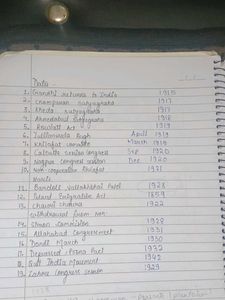 Date
1. Gandhi returns to India 1915
2. Champaran satyagraha 1917
3. Kheda satyagraha 1917
4. Ahmedabad satyagraha 1918
5. Rowlatt Act 1919
6. Jallianwala Bagh April 1919
7. Khilafat committe March 1919
8. Calcutta session congress Sep 1920
9. Nagpur congress session Dec 1920
10. Non-cooperation Khilafat 1921
11. Bardoli vallabhbhai Patel 1928
12. Inland Emigration Act 1859
13. Chauri chaura 1922
withdrawal from non-
14. Simon commission 1928
15. Allahabad Congress 1931
16. Dandi March 1930
17. Depressed Poona Pact 1932
18. Quit India Movement 1942
19. Lahore Congress session 1929